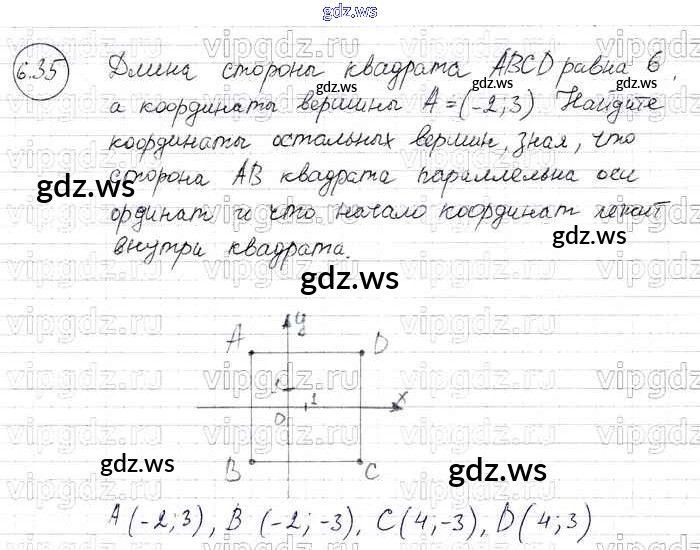 gdz.ws
6.35
Длина стороны квадрата ABCD равна 6,
а координаты вершины A = (-2; 3) Найдите
координаты остальных вершин, зная, что
сторона AB квадрата параллельна оси
ординат и что начало координат лежит
внутри квадрата.
y
A D
1
0 1 x
B C
A (-2; 3), B (-2; -3), C (4; -3), D (4; 3)
gdz.ws
gdz.ws
gdz.ws
gdz.ws
gdz.ws
gdz.ws
gdz.ws
gdz.ws
gdz.ws
vipgdz.ru